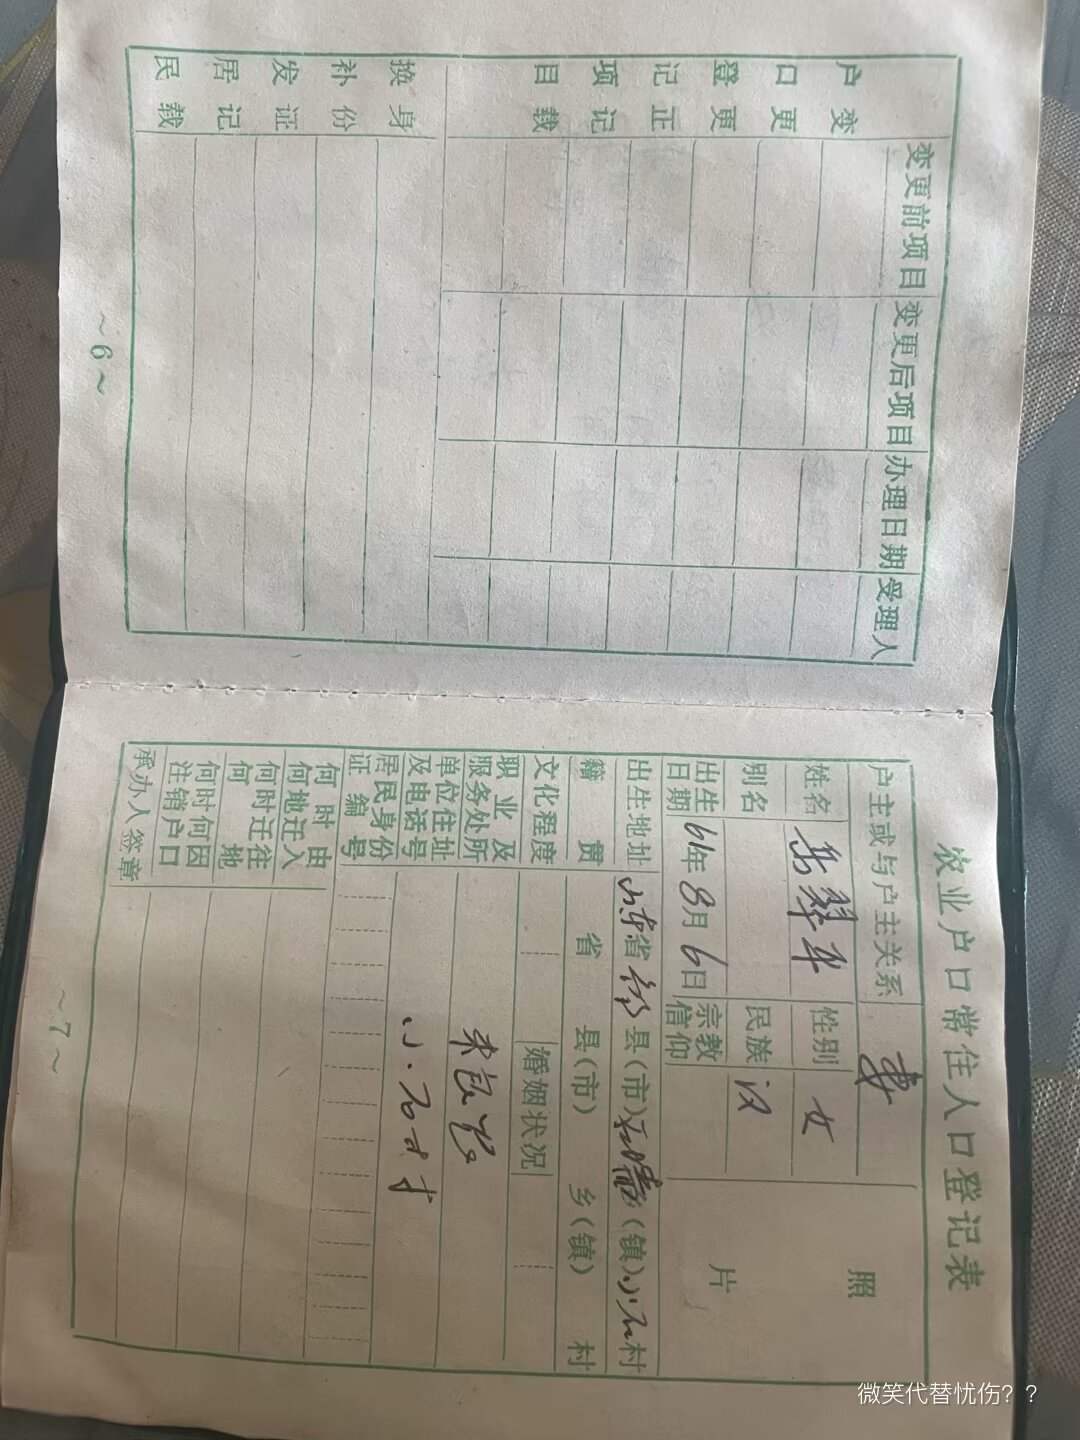 户口登记项目 变更更正记载
变更前项目 变更后项目 办理日期 受理人
换补发居民
身份证记载
~6~
农业户口常住人口登记表
户主或与户主关系 妻
姓名 翠平 性别 女
别名 民族 汉
出生日期 61年8月6日 宗教信仰
照片
出生地址 山东省 县(市) (镇)小石村
籍贯 省 县(市) 乡(镇) 村
文化程度 婚姻状况
职业及服务处所
单位住址及电话号 小石村
居民身份证编号
何时由何地迁入
何时迁往何地
何时何因注销户口
承办人签章
~7~
微笑代替忧伤？？